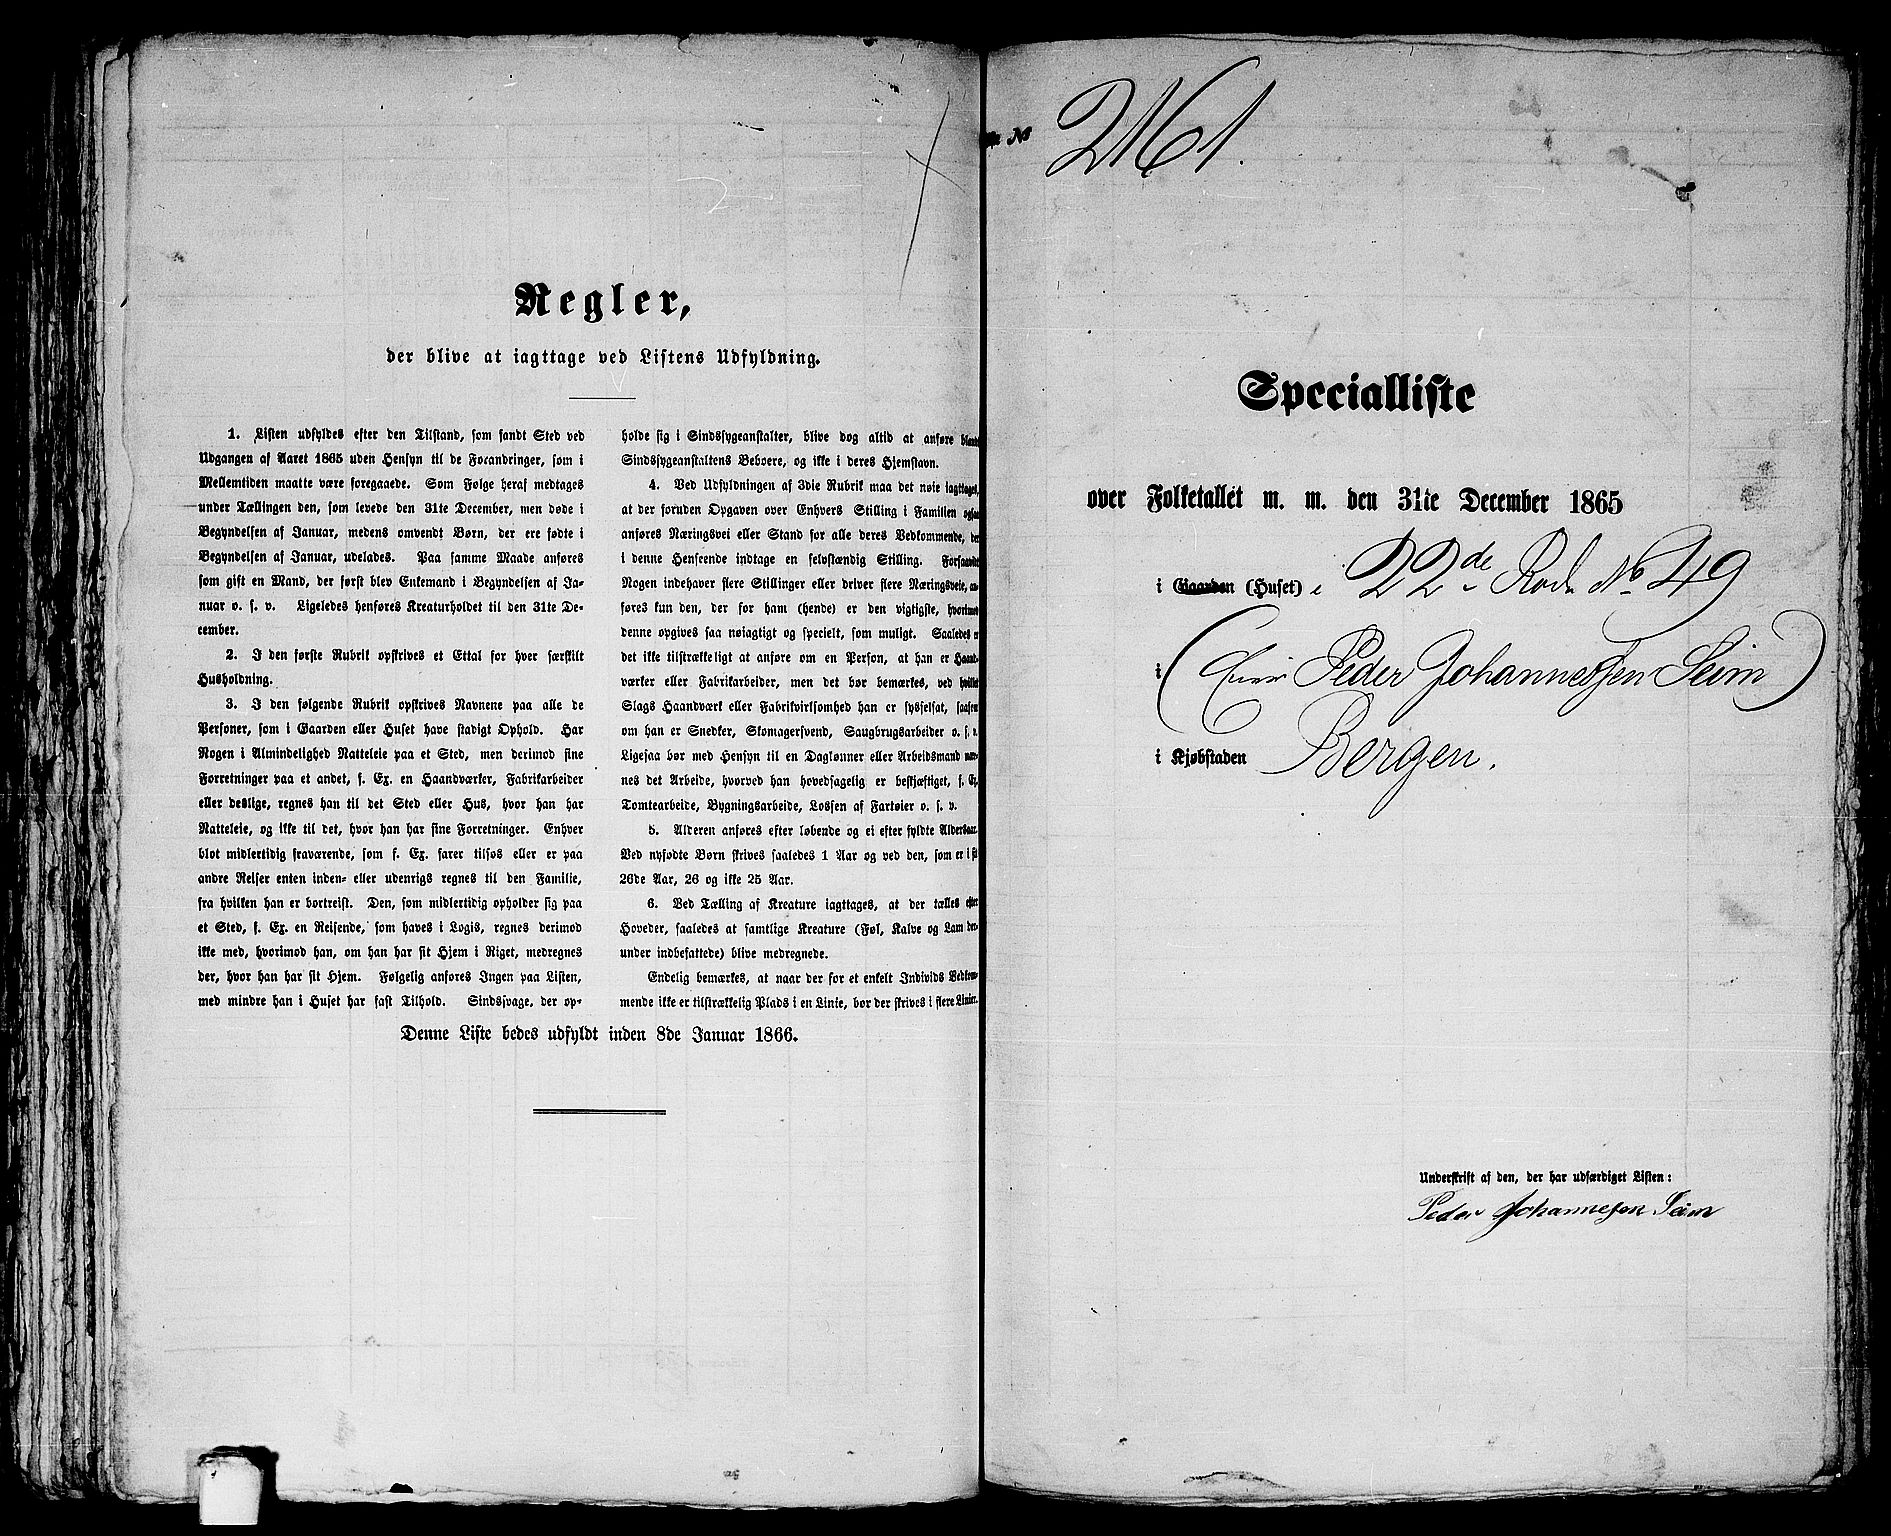 Regler,
der blive at iagttage ved Listens Udfyldning.
1. Listen udfyldes efter den Tilstand, som fandt Sted ved
Udgangen af Aaret 1865 uden Hensyn til de Forandringer, som i
Mellemtiden maatte være foregaaede. Som Følge heraf medtages
under Tællingen den, som levede den 31te December, men døde i
Begyndelsen af Januar, medens omvendt Børn, der ere fødte i
Begyndelsen af Januar, udelades. Paa samme Maade anføres
som gift en Mand, der først blev Enkemand i Begyndelsen af Ja-
nuar o. s. v. Ligeledes henføres Kreaturholdet til den 31te De-
cember.
2. I den første Rubrik opskrives et Ettal for hver særskilt
Husholdning.
3. I den følgende Rubrik opskrives Navnene paa alle de
Personer, som i Gaarden eller Huset have stadigt Ophold. Har
Nogen i Almindelighed Natteleie paa et Sted, men derimod sine
Forretninger paa et andet, f. Ex. en Haandværker, Fabrikarbeider
eller deslige, regnes han til det Sted eller Hus, hvor han har
Natteleie, og ikke til det, hvor han har sine Forretninger. Enhver
blot midlertidig fraværende, som f. Ex. farer tilsøs eller er paa
andre Reiser enten inden- eller udenrigs regnes til den Familie,
fra hvilken han er bortreist. Den, som midlertidig opholder sig paa
et Sted, f. Ex. en Reisende, som haves i Logis, regnes derimod
ikke med, hvorimod han, om han har sit Hjem i Riget, medregnes
der, hvor han har sit Hjem. Følgelig anføres Ingen paa Listen,
med mindre han i Huset har fast Tilhold. Sindssvage, der op-
holde sig i Sindssygeanstalter, blive dog altid at anføre blandt
Sindssygeanstaltens Beboere, og ikke i deres Hjemstavn.
4. Ved Udfyldningen af 3die Rubrik maa det nøie iagttages,
at der foruden Opgaven over Enhvers Stilling i Familien ogsaa
anføres Næringsvei eller Stand for alle deres Vedkommende, der
i denne Henseende indtage en selvstændig Stilling. Forsaavidt
Nogen indehaver flere Stillinger eller driver flere Næringsveie, an-
føres kun den, der for ham (hende) er den vigtigste, hvorimod
denne opgives saa nøiagtigt og specielt, som muligt. Saaledes er
det ikke tilstrækkeligt at anføre om en Person, at han er Haand-
værker eller Fabrikarbeider, men det bør bemærkes, ved hvilket
Slags Haandværk eller Fabrikvirksomhed han er sysselsat, saasom
om han er Snedker, Skomagersvend, Saugbrugsarbeider o. s. v.
Ligesaa bør med Hensyn til en Dagløner eller Arbeidsmand næv-
nes det Arbeide, hvorved han hovedsagelig er beskjæftiget, f. Ex.
Tomtearbeide, Bygningsarbeide, Lossen af Fartøier o. s. v.
5. Alderen anføres efter løbende og ei efter fyldte Aldersaar.
Ved nyfødte Børn skrives saaledes 1 Aar og ved den, som er i sit
26de Aar, 26 og ikke 25 Aar.
6. Ved Tælling af Kreature iagttages, at der tælles efter
Hoveder, saaledes at samtlige Kreature (Føl, Kalve og Lam der-
under indbefattede) blive medregnede.
Endelig bemærkes, at naar der for et enkelt Individs Vedkom-
mende ikke er tilstrækkelig Plads i en Linie, bør der skrives i flere Linier.
Denne Liste bedes udfyldt inden 8de Januar 1866.
№ 2161.
Specialliste
over Folketallet m. m. den 31te December 1865
i Gaarden (Huset) i 22de Rode No 49
i (Eier Peder Johannessen Seim)
i Kjøbstaden Bergen.
Underskrift af den, der har udfærdiget Listen:
Peder Johannesen Seim